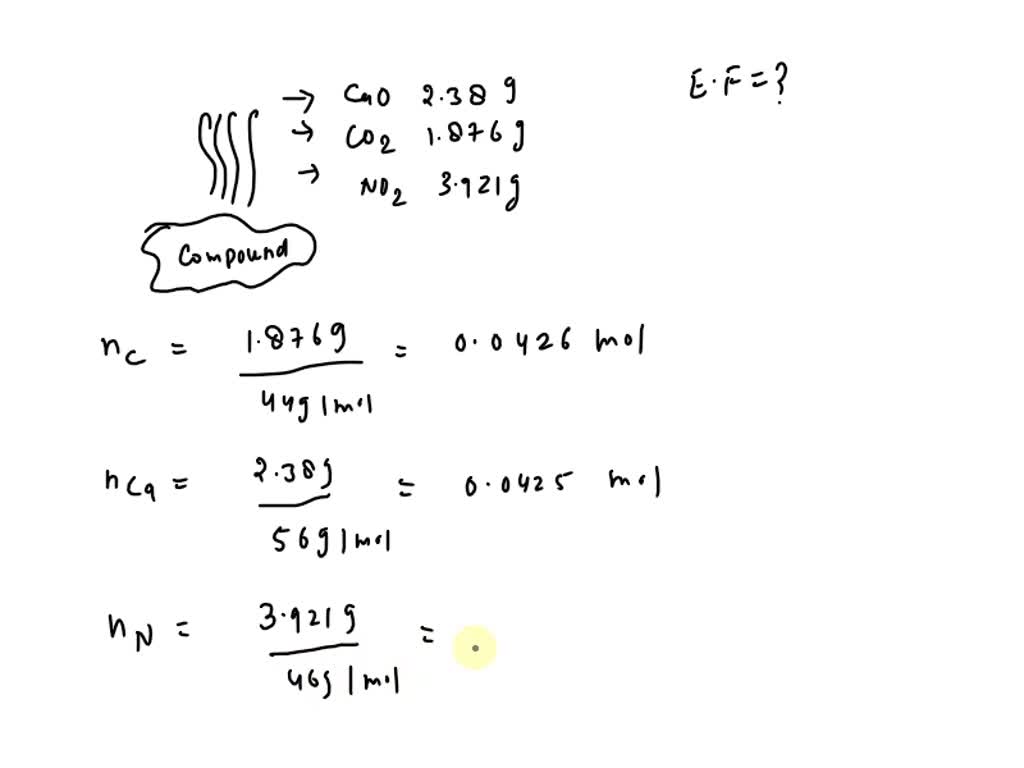 → CaO 2.38 g
E.F = ?
→ CO2 1.876 g
→ NO2 3.921 g
Compound
nC = 1.876 g / 44 g/mol = 0.0426 mol
nCa = 2.38 g / 56 g/mol = 0.0425 mol
nN = 3.921 g / 46 g/mol =